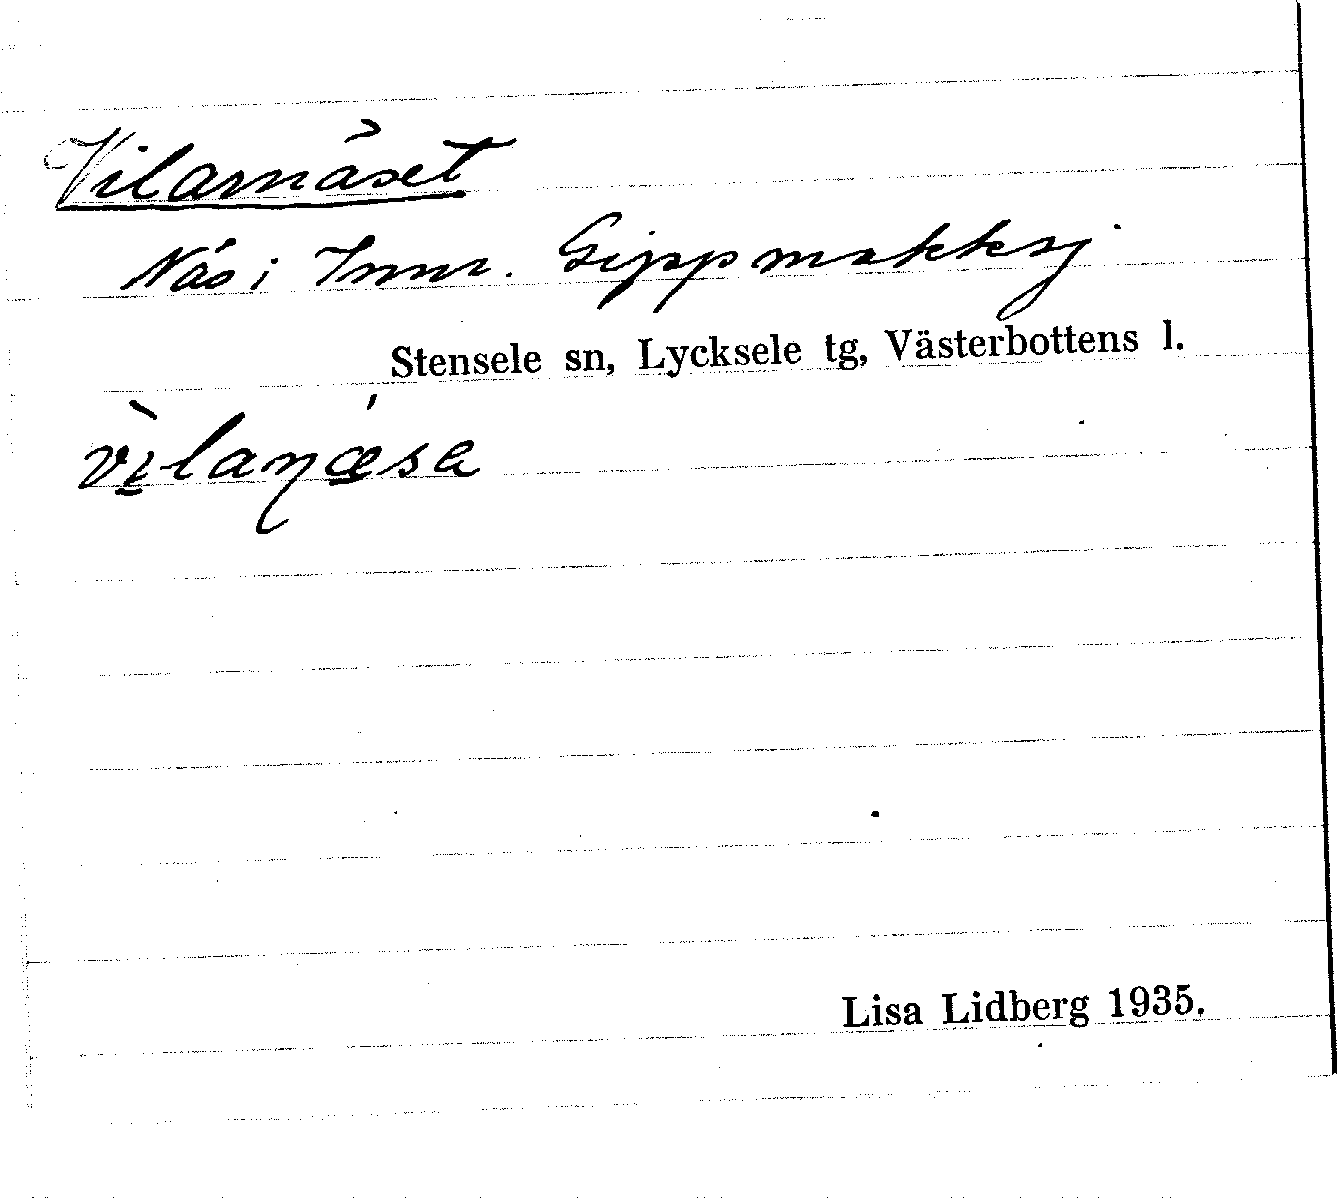 Vilarnäset
Näs i Innr. Gippmokksj
Stensele sn, Lycksele tg, Västerbottens l.
vìlaŋæsa
Lisa Lidberg 1935.